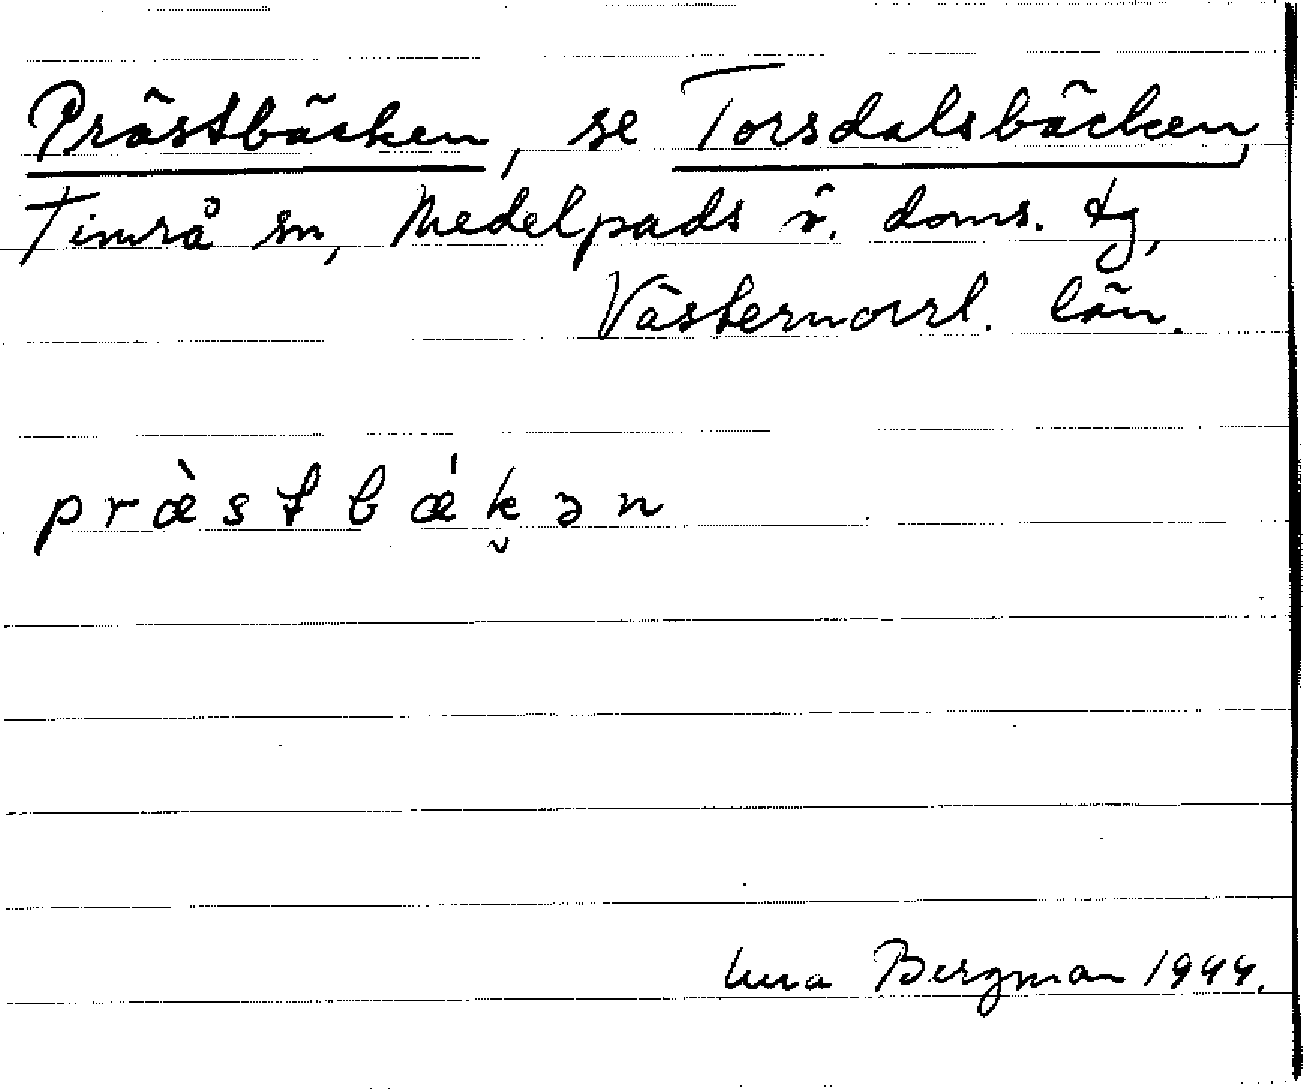 Prästbäcken, se Torsdalsbäcken,
Timrå sn, Medelpads ö. doms. tg,
Västernorrl. län.
pr&#x1FD;̀stbǽk̬ən
Bergman 1944.